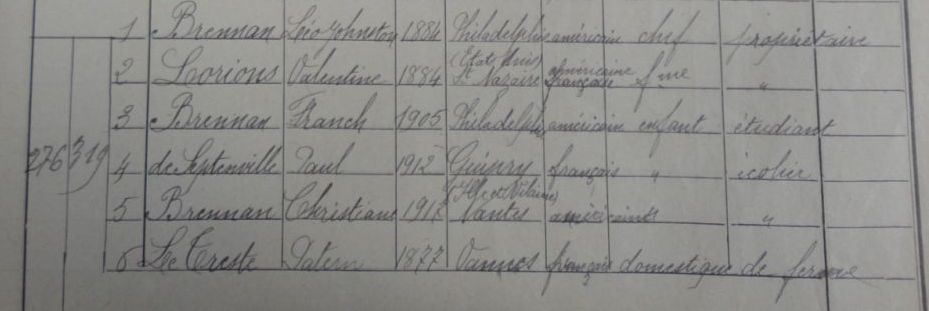 1 Brennan Léo Johnston 1884 Philadelphie américain chef propriétaire
(Etats Unis)
2 Lorious Valentine 1884 St Nazaire américaine française fme "
3 Brennan Franck 1905 Philadelphie américain enfant étudiant
276 319 4 de Septenville Paul 1912 Guipry français " écolier
(Ille et Vilaine)
5 Brennan Christiane 1917 Nantes américaine " "
6 Le Treste Patern 1877 Vannes français domestique de ferme